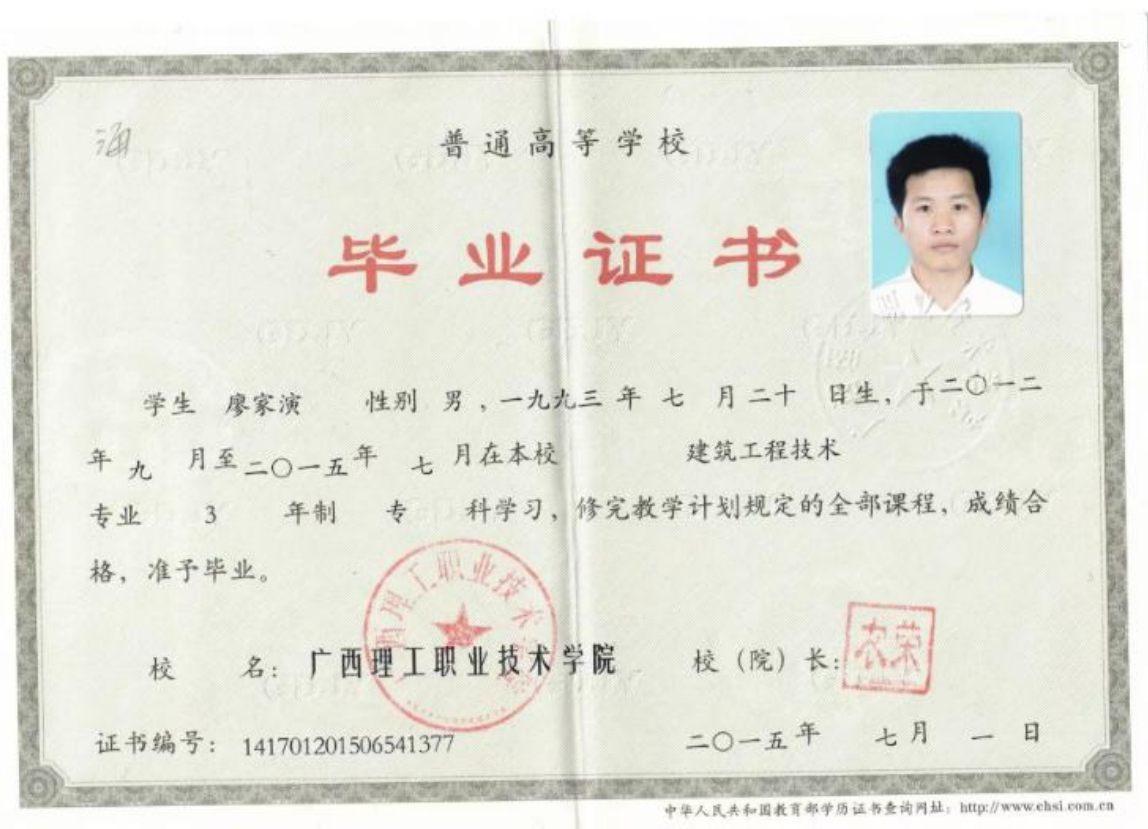 海
普通高等学校
毕业证书
学生 廖家演 性别 男,一九九三 年 七 月 二十 日生,于二〇一二
年 九 月至二〇一五年 七 月在本校 建筑工程技术
专业 3 年制 专 科学习,修完教学计划规定的全部课程,成绩合
格,准予毕业。
广西理工职业技术学院
校 名:广西理工职业技术学院 校(院)长:农荣
证书编号:141701201506541377 二〇一五年 七月 一 日
中华人民共和国教育部学历证书查询网址:http://www.chsi.com.cn